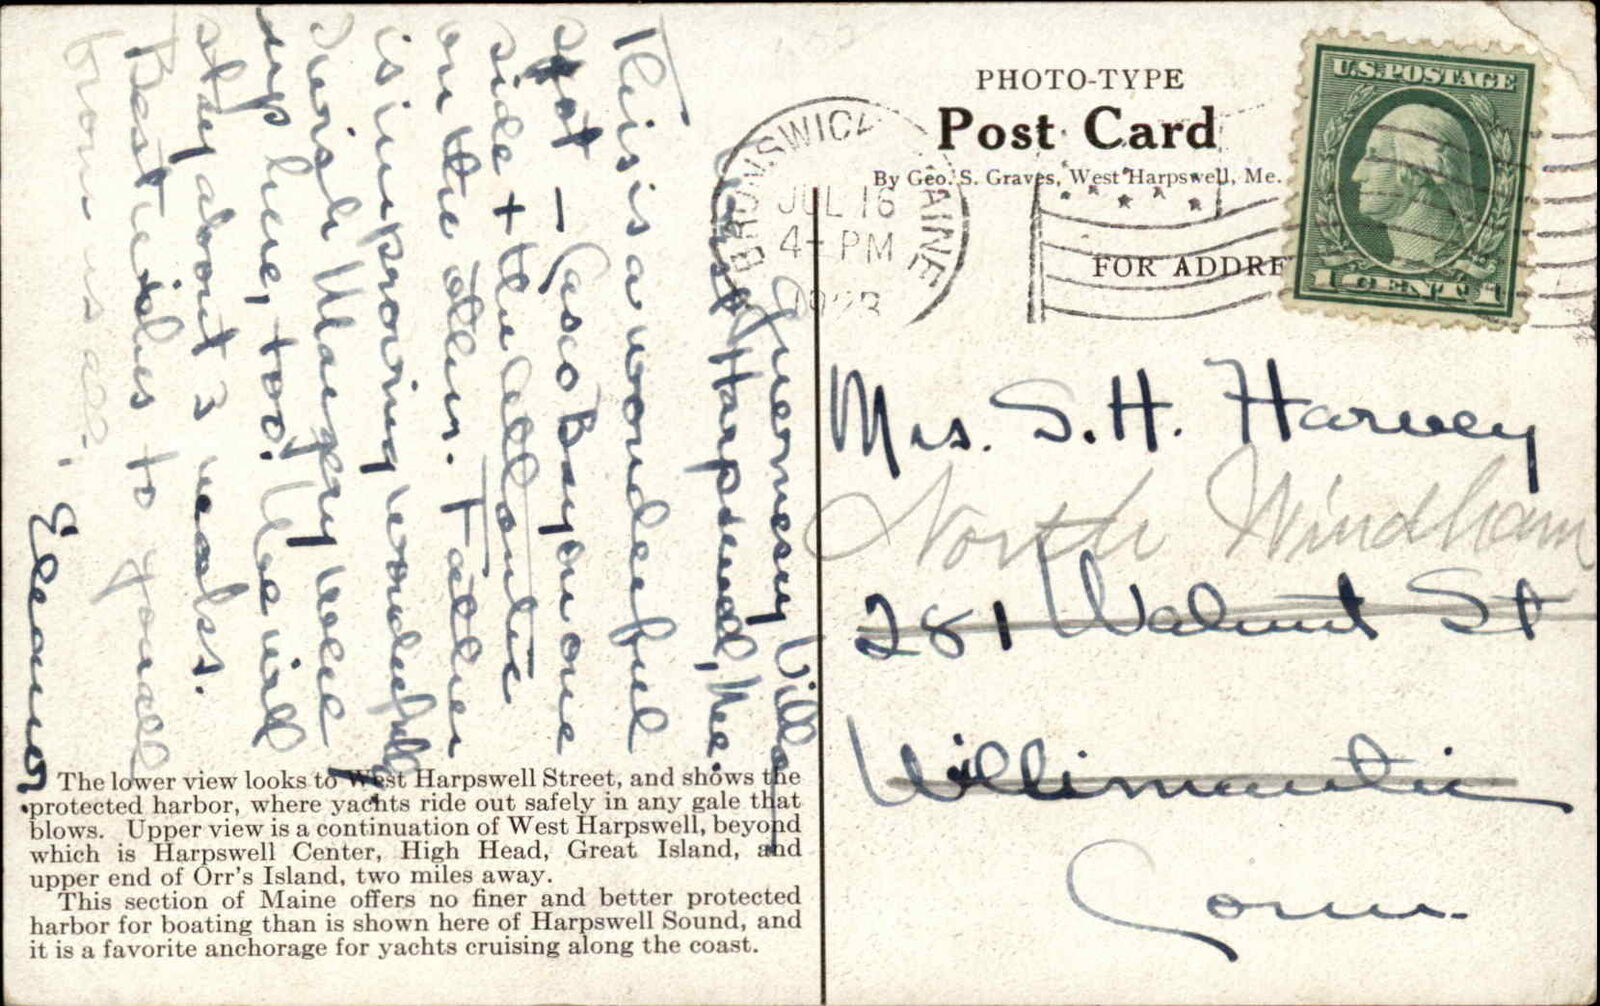 PHOTO-TYPE
Post Card
By Geo. S. Graves, West Harpswell, Me.
FOR ADDRE
U.S. POSTAGE
1 CENT 1
BRUNSWICK MAINE
JUL 16
4 - PM
1923
Guernsey Villa
West Harpswell, Me.
This is a wonderful
spot — Casco Bay on one
side + the Atlantic
on the other. Father
is improving wonderfully
I wish Margery were
up here, too. We will
stay about 3 weeks.
Best wishes to you all
from us all.
Eleanor
Mrs. S. H. Harvey
North Windham
281 Walnut St
Willimantic
Conn.
The lower view looks to West Harpswell Street, and shows the
protected harbor, where yachts ride out safely in any gale that
blows. Upper view is a continuation of West Harpswell, beyond
which is Harpswell Center, High Head, Great Island, and
upper end of Orr's Island, two miles away.
This section of Maine offers no finer and better protected
harbor for boating than is shown here of Harpswell Sound, and
it is a favorite anchorage for yachts cruising along the coast.